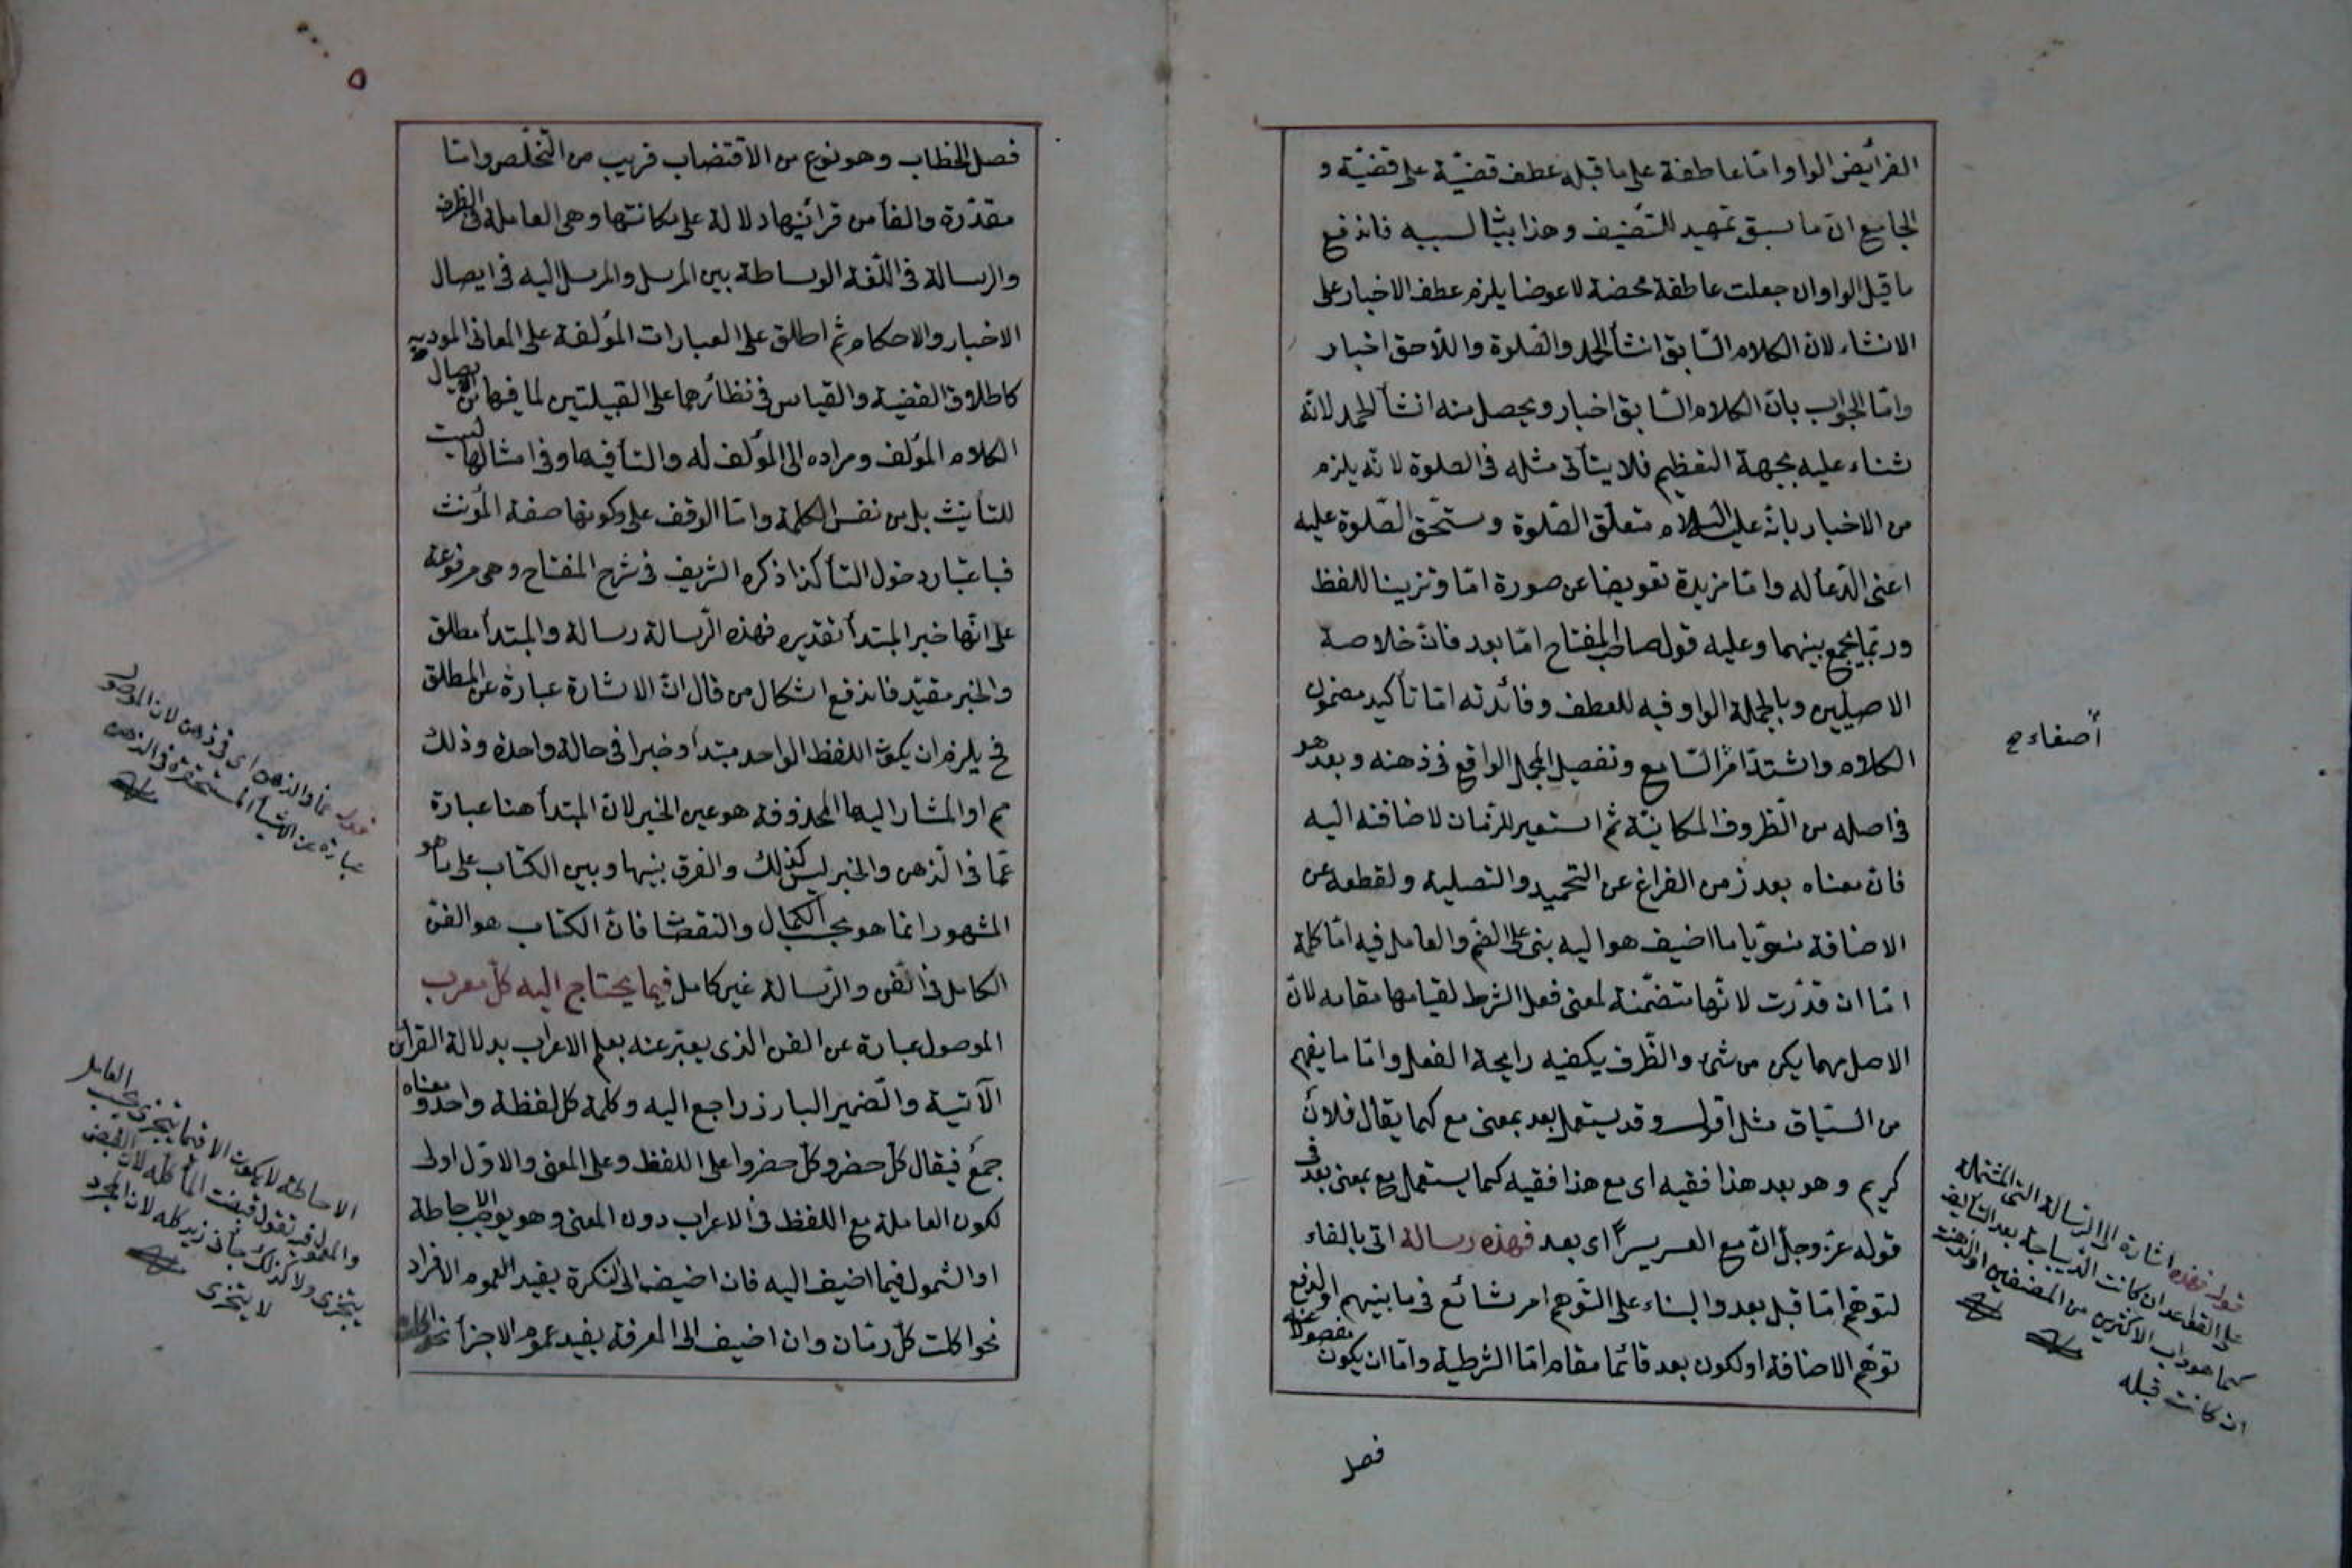 الفرائض الواو امّا عاطفة على ما قبله عطف قضيّة على قضيّة و
الجامع انّ ما سبق تمهيد للتصنيف وهذا بيان لسببه فاندفع
ما قيل الواو ان جعلت عاطفة محضة لا عوضا يلزم عطف الاخبار على
الانشاء لان الكلام السّابق انشأ الحمد والصّلوة واللّاحق اخبار
وامّا الجواب بانّ الكلام السّابق اخبار ويحصل منه انشأ الحمد لانّه
ثناء عليه بجهة التعظيم فلا يتأتى مثله فى الصلوة لانّه يلزم
من الاخبار بانّه عليه السلام متعلّق الصّلوة ومستحقّ الصّلوة عليه
اعنى الدّعأ له وامّا مزيدة تعويضا عن صورة امّا وتزيينا للفظ
وربّما يجمع بينهما وعليه قول صاحب المفتاح امّا بعد فانّ خلاصة
الاصليين وبالجملة الواو فيه للعطف وفائدته امّا تأكيد مضمون
الكلام واشتداد السّامع وتفصيل المجمل الواقع فى ذهنه وبعد هو
فى اصله من الظروف المكانيّة ثم استعير للزّمان لاضافته اليه
فان معناه بعد زمن الفراغ عن التحميد والتصلية ولقطعه عن
الاضافة منويّا ما اضيف هو اليه بنى على الضمّ والعامل فيه امّا كلمة
امّا ان قدّرت لانّها متضمّنة لمعنى فعل الشرط لقيامها مقامه لانّ
الاصل مهما يكن من شئ والظّرف يكفيه رايحة الفعل وامّا ما يفهم
من السّياق مثل اقول وقد يستعمل بعد بمعنى مع كما يقال فلان
كريم وهو بعد هذا فقيه اى مع هذا فقيه كما يستعمل مع بمعنى بعد فى
قوله عزّ وجلّ انّ مع العسر يسرًا اى بعد فهذه رسالة اتى بالفاء
لتوهّم امّا قبل بعد والبناء على التّوهم امر شائع فى ما بينهم او لدفع
توهّم الاضافة او لكون بعد قائما مقام امّا الشرطية وامّا ان يكون
مفصولا عنه
فصل
أصغاء صح
قوله فهذه اشارة الى الرّسالة التى المشتملة
على القواعد ان كانت الدّيباجة بعد التأليف
كما هو دأب الاكثرين من المصنفين او الذهنية
ان كانت قبله
٥
فصل الخطاب وهو نوع من الاقتضاب قريب من التخلّص وامّا
مقدّرة والفأ من قرائنها دلالة على مكانتها وهى العاملة فى الظرف
والرسالة فى اللّغة الوساطة بين المرسل والمرسل اليه فى ايصال
الاخبار والاحكام ثم اطلق على العبارات المؤلّفة على المعانى المودية
كاطلاق القضية والقياس فى نظائرهما على القبيلتين لما فيها من ايصال
الكلام المؤلّف ومراده الى المؤلّف له والتأ فيها وفى امثالها ليست
للتأنيث بل من نفس الكلمة وامّا الوقف على وكونها صفة المؤنث
فباعتبار دخول التأ كذا ذكره الشريف فى شرح المفتاح وهى مرفوعة
على انّها خبر المبتدأ تقديره فهذه الرّسالة رسالة والمبتدأ مطلق
والخبر مقيّد فاندفع اشكال من قال انّ الاشارة عبارة عن المطلق
فح يلزم ان يكون اللفظ الواحد مبتدأ وخبرا فى حالة واحدة وذلك
مم او المشار اليها المحذوفة هو عين الخبر لان المبتدأ هنا عبارة
عمّا فى الذهن والخبر ليس كذلك والفرق بينها وبين الكتاب على ما هو
المشهور انّما هو بحسب الكمال والنقصان فانّ الكتاب هو الفنّ
الكامل فى الفن والرّسالة غير كامل فيما يحتاج اليه كلّ معرب
الموصول عبارة عن الفن الذى يعبّر عنه بعلم الاعراب بدلالة القرائن
الآتية والضّمير البارز راجع اليه وكلمة كل لفظة واحد ومعناه
جمع فيقال كلّ حضر وكلّ حضروا على اللفظ وعلى المعنى والاوّل اولى
لكون العاملة مع اللفظ فى الاعراب دون المعنى وهو يوجب الاحاطة
او الشمول فيما اضيف اليه فان اضيف الى النكرة يفيد العموم الافراد
نحو اكلت كلّ رمّان وان اضيف الى المعرفة يفيد عموم الاجزأ نحو اكلت
قوله عمّا فى الذهن اى فى ذهن لان الموجود
عبارة عن الاشيأ المستحضرة فى الذهن
الاحاطة لا يكون الا فيما يتجزى بحسب العامل
والمعمول فيه تقول قبضت المأ كلّه لان القبض
يتجزى ولا كذلك جأنى زيد كله لان المجرد
لا يتجزى